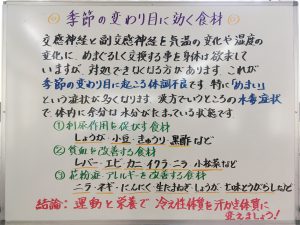 季節の変わり目に効く食材
交感神経と副交感神経を気温の変化や湿度の
変化に、めまぐるしく交換する事を身体は欲して
いますが、対処できなくなる方があります。これが
季節の変わり目に起こる体調不良です。特に「めまい」
という症状が多くなります。漢方でいうところの水毒症状
で、体内に余分な水分がたまっている状態です
①利尿作用を促がす食材
しょうが・小豆・きゅうり・黒酢など
②貧血を改善する食材
レバー・エビ・カニ・イクラ・ニラ・小松菜など
③花粉症・アレルギーを改善する食材
ニラ・ネギ・にんにく・生たまねぎ・しょうが・七味とうがらしなど
結論:運動と栄養で冷え性体質を汗かき体質に
変えましょう!